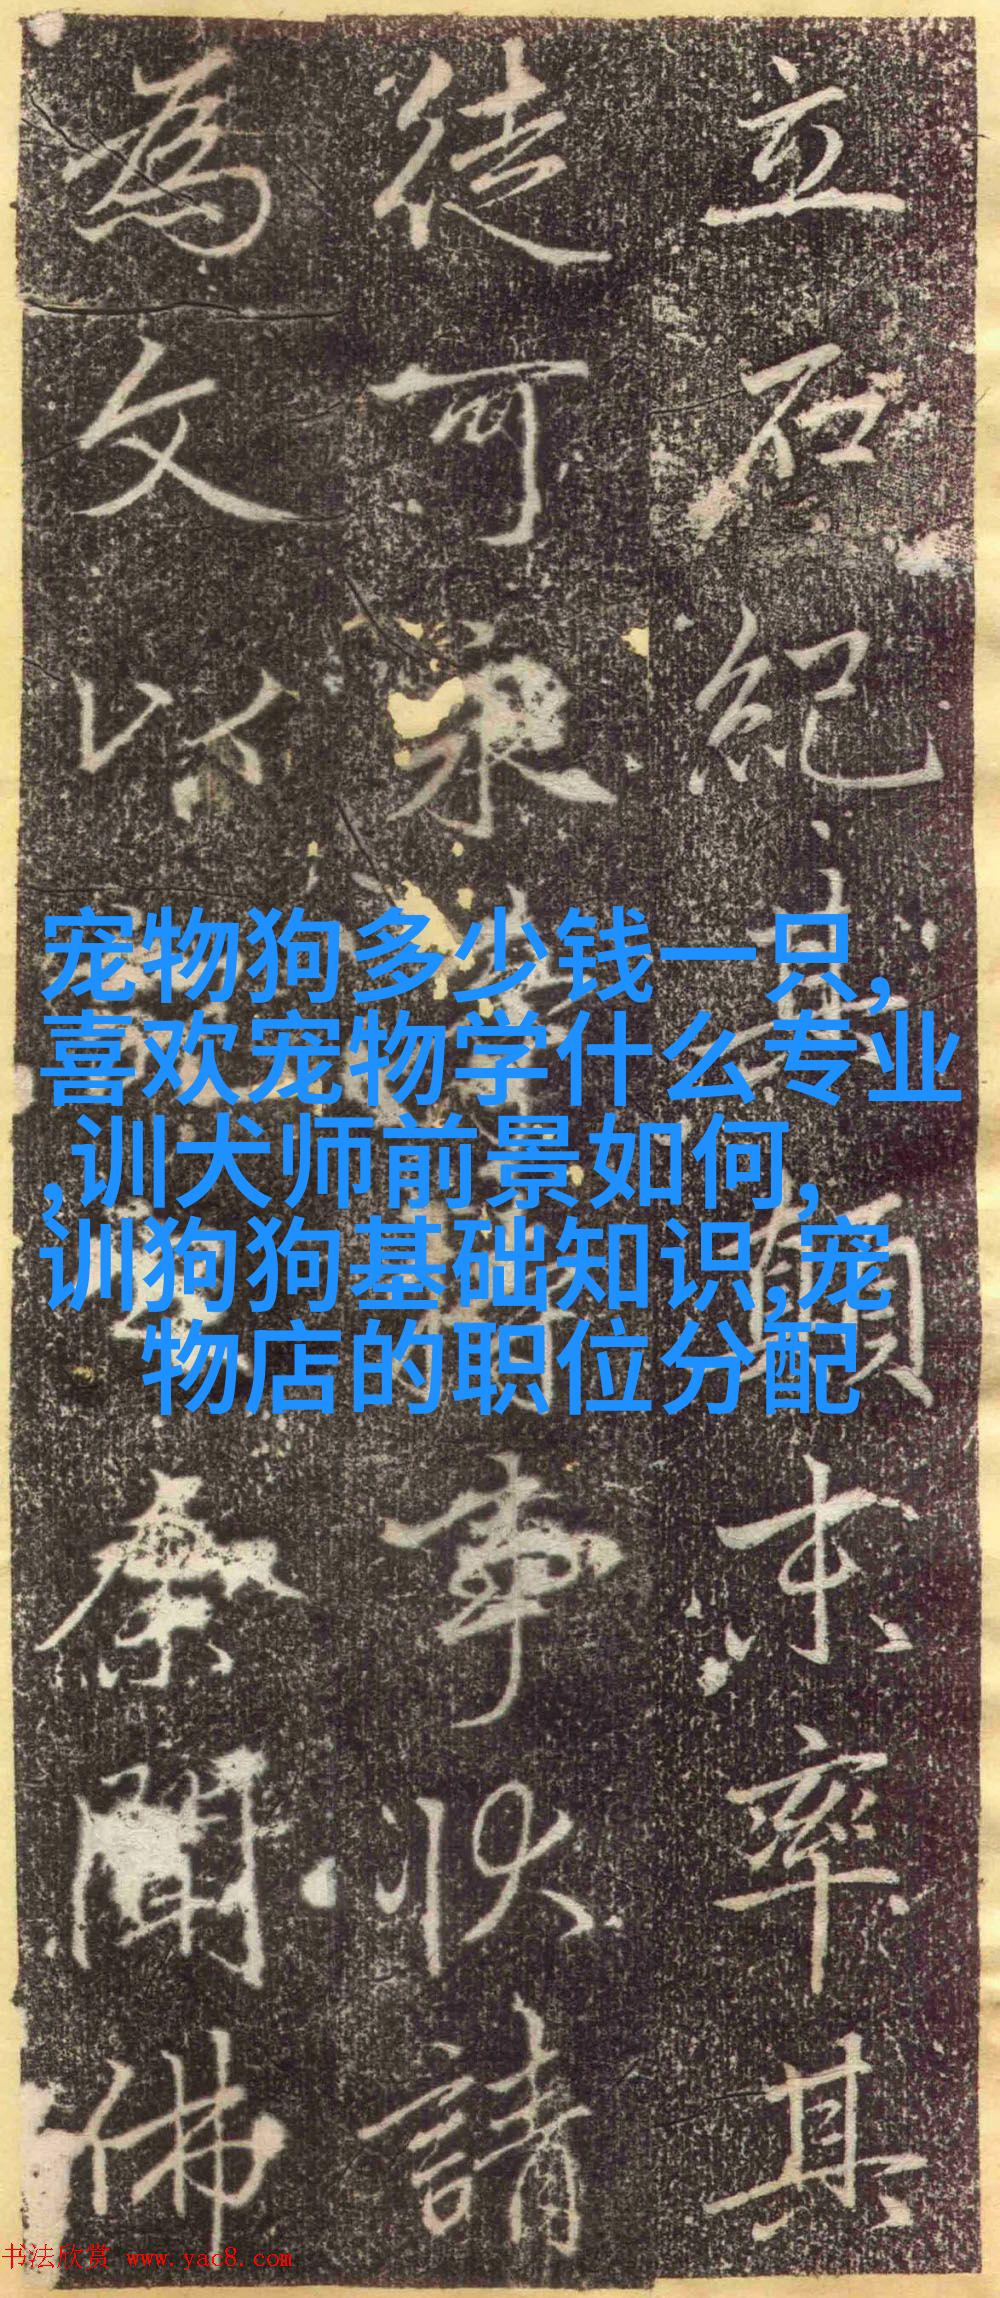 立石紀其顛末率其
徒可永事狀請
為文以余聞佛
宠物狗多少钱一只,
喜欢宠物学什么专业
,训犬师前景如何,
训狗狗基础知识,宠
物店的职位分配
书法欣赏 www.yac8.com